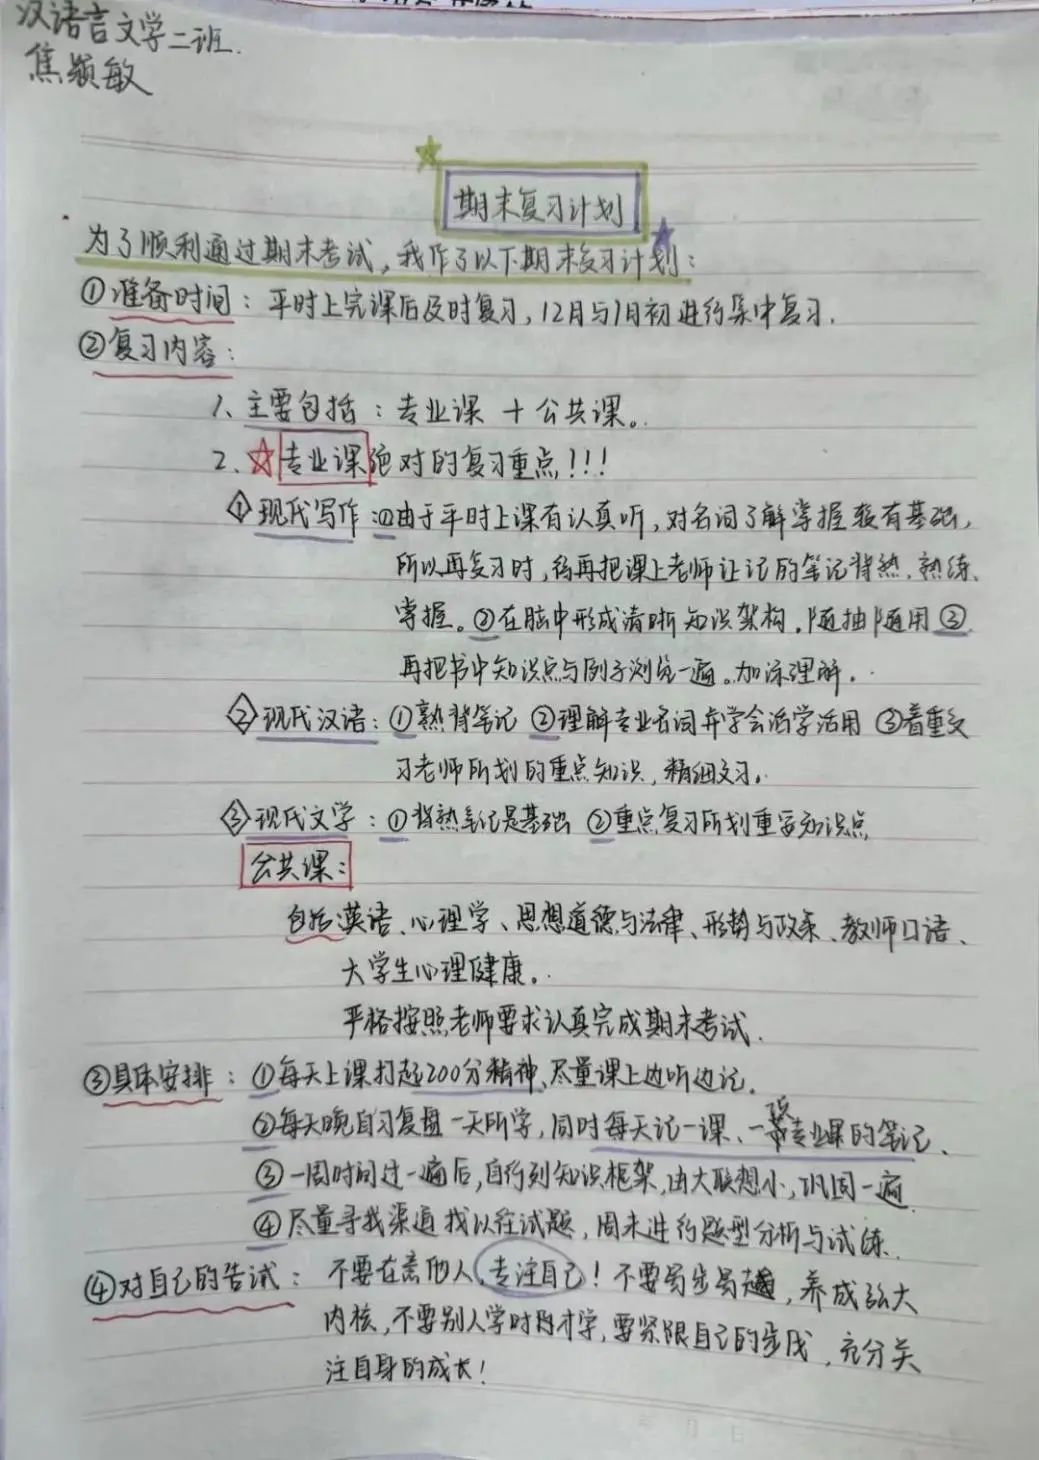 汉语言文学二班.
焦颖敏
期末复习计划
为了顺利通过期末考试，我作了以下期末复习计划：
①准备时间：平时上完课后及时复习，12月与1月初进行集中复习.
②复习内容：
1、主要包括：专业课 + 公共课。
2、☆专业课绝对的复习重点！！！
①现代写作：①由于平时上课有认真听，对名词了解掌握较有基础，
所以再复习时，得再把课上老师让记的笔记背熟、熟练、
掌握。②在脑中形成清晰知识架构，随抽随用③
再把书中知识点与例子浏览一遍。加深理解.
②现代汉语：①熟背笔记 ②理解专业名词并学会活学活用 ③着重复
习老师所划的重点知识，精细复习.
③现代文学：①背熟笔记是基础 ②重点复习所划重要知识点
公共课：
包括：英语、心理学、思想道德与法律、形势与政策、教师口语、
大学生心理健康。
严格按照老师要求认真完成期末考试.
③具体安排：①每天上课打起200分精神、尽量课上边听边记.
②每天晚自习复盘一天所学，同时每天记一课、一段专业课的笔记、
③一周时间过一遍后，自行列知识框架，由大联想小，巩固一遍
④尽量寻找渠道找以往试题，周末进行题型分析与试练.
④对自己的告诫：不要在意他人，专注自己！不要易步易趋，养成强大
内核，不要别人学时你才学，要紧跟自己的步伐，充分关
注自身的成长！
年 月 日